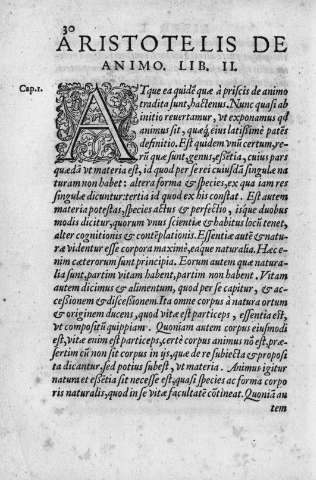 30
ARISTOTELIS DE
ANIMO. LIB. II.
Cap.1.
ATque ea quidẽ quæ à priscis de animo
tradita sunt, hactenus. Nunc quasi ab
initio reuertamur, vt exponamus qd
animus sit, quæq; eius latissimè patẽs
definitio. Est quidem vnũ certum, re-
rũ quæ sunt, genus, essẽtia, cuius pars
quædã vt materia est, id quod per se rei cuiusdã singulæ na
turam non habet: altera forma & species, ex qua iam res
singulæ dicuntur: tertia id quod ex his constat. Est autem
materia potestas, species actus & perfectio, isque duobus
modis dicitur, quorum vnus scientiæ & habitus locũ tenet,
alter cognitionis & contẽplationis. Essentiæ autẽ & natu-
ræ videntur esse corpora maximè, eaque naturalia. Hæc e-
nim cæterorum sunt principia. Eorum autem quæ natura-
lia sunt, partim vitam habent, partim non habent. Vitam
autem dicimus & alimentum, quod per se capitur, & ac-
cessionem & discessionem. Ita omne corpus à natura ortum
& originem ducens, quod vitæ est particeps, essentia est,
vt compositũ quippiam. Quoniam autem corpus eiusmodi
est, vitæ enim est particeps, certè corpus animus nõ est, præ-
sertim cũ non sit corpus in ijs, quæ de re subiecta & proposi
ta dicantur, sed potius subest, vt materia. Animus igitur
natura et essẽtia sit necesse est, quasi species ac forma corpo
ris naturalis, quod in se vitæ facultatẽ cõtineat. Quoniã au
tem